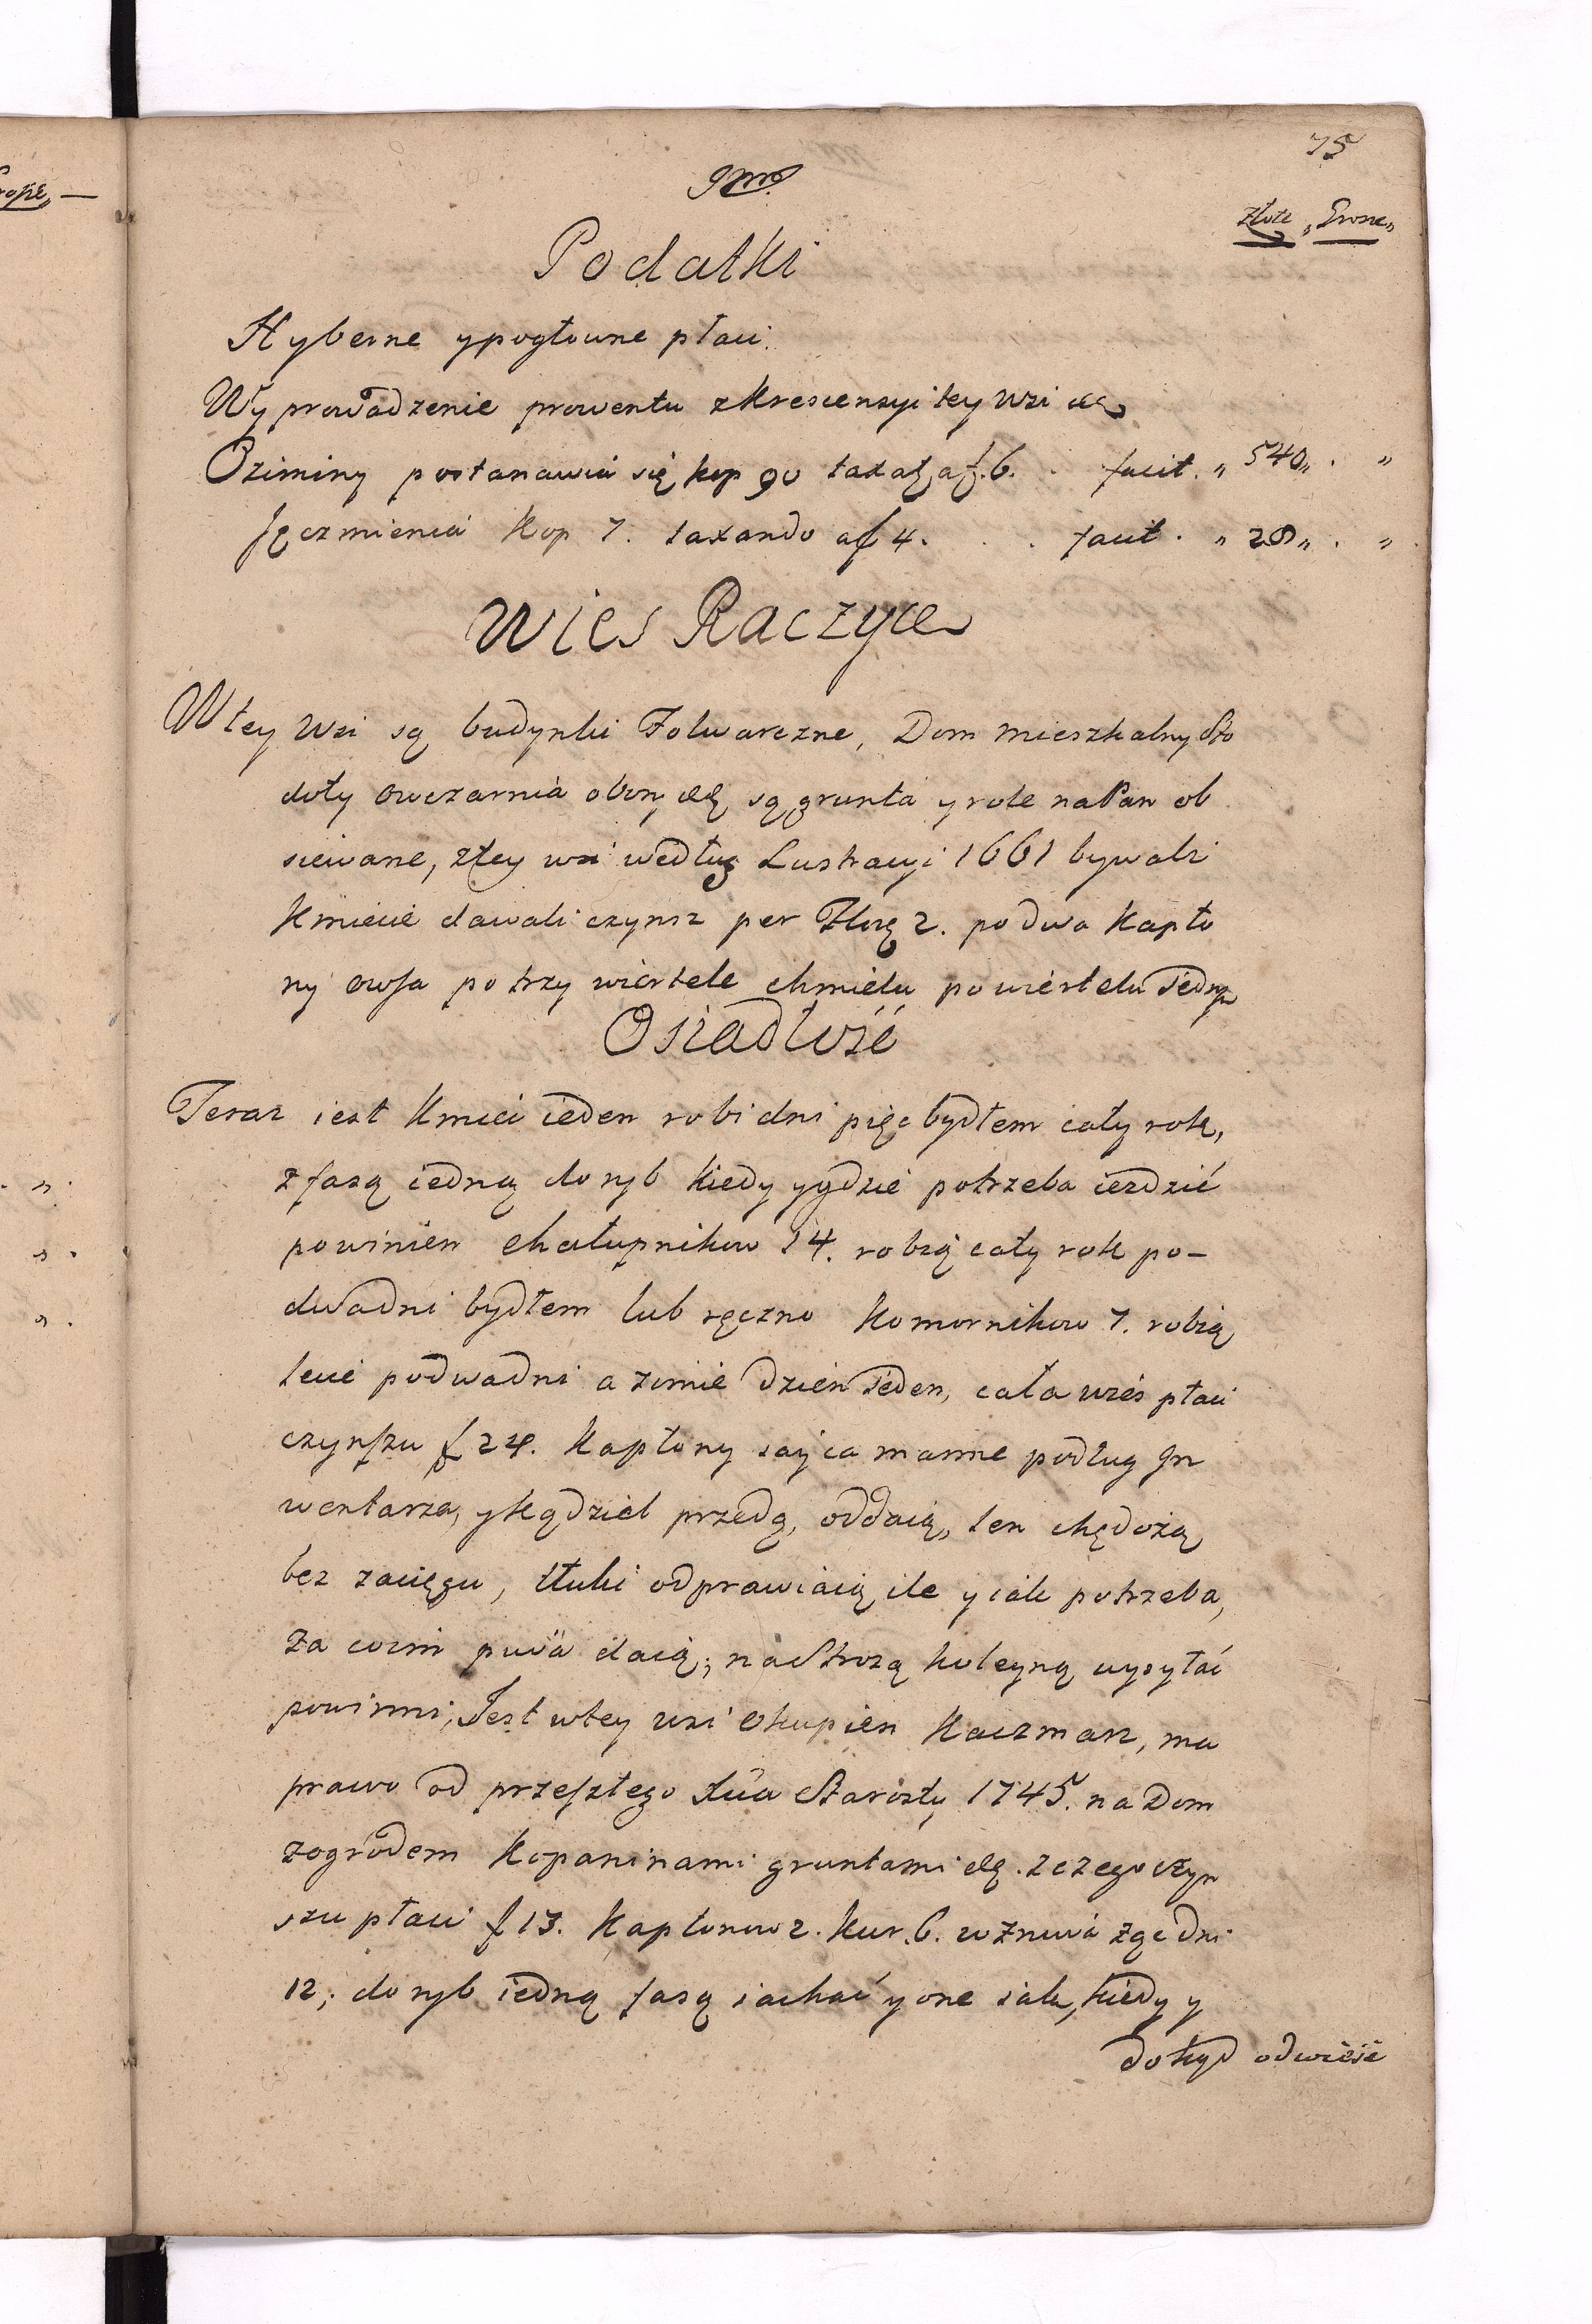 75
9mo
Złote „ Grosze „
Podatki
Hyberne ypogłowne płaci.
Wyprowadzenie prowentu zkrescensyi tey wsi etc
Oziminy postanawia się kop 90 taxatą a f. 6. . facit. „ 540 „ . „
Jęczmienia kop 7. taxando a f 4. . . . facit. „ 28 „ . „
Wies Raczyce
Wtey wsi są budynki Folwarczne, Dom mieszkalny Sto
doły owczarnia obory etc są grunta y role naPan ob
siewane, ztey wsi według Lustracyi 1661 bywali
Kmiecie dawali czynsz per Złotę 2. po dwa Kapło
ny owsa po trzy wiertele chmielu po wiertelu iedny
Osiadłość
Teraz iest Kmieć ieden robi dni pięc bydłem cały rok,
z fasą iedną do ryb kiedy ygdzie potrzeba iezdzić
powinien chałupnikow 14. robią cały rok po-
dwadni bydłem lub ręczno komornikow 7. robią
lecie podwadni a zimie dzien ieden, cała wieś płaci
czynszu f 24. Kapłony iayca marne podług In
wentarza, ykądziel przedą, oddaią, len chędożą
bez zaciągu, tłuki odprawiaią ile y iak potrzeba,
za coim piwa daią; naStrożą koleyną wysyłać
powinni; Jest wtey wsi okupien Kaczmarz, ma
prawo od przeszłego Starosty 1745. na Dom
zogrodem kopaninami gruntami etc. zczego czyn
szu płaci f 13. Kapłonow 2. Kur. 6. wżniwa żąć dni
12; do ryb iedną fasą iachać y one iak, kiedy y
dokąd odwieść